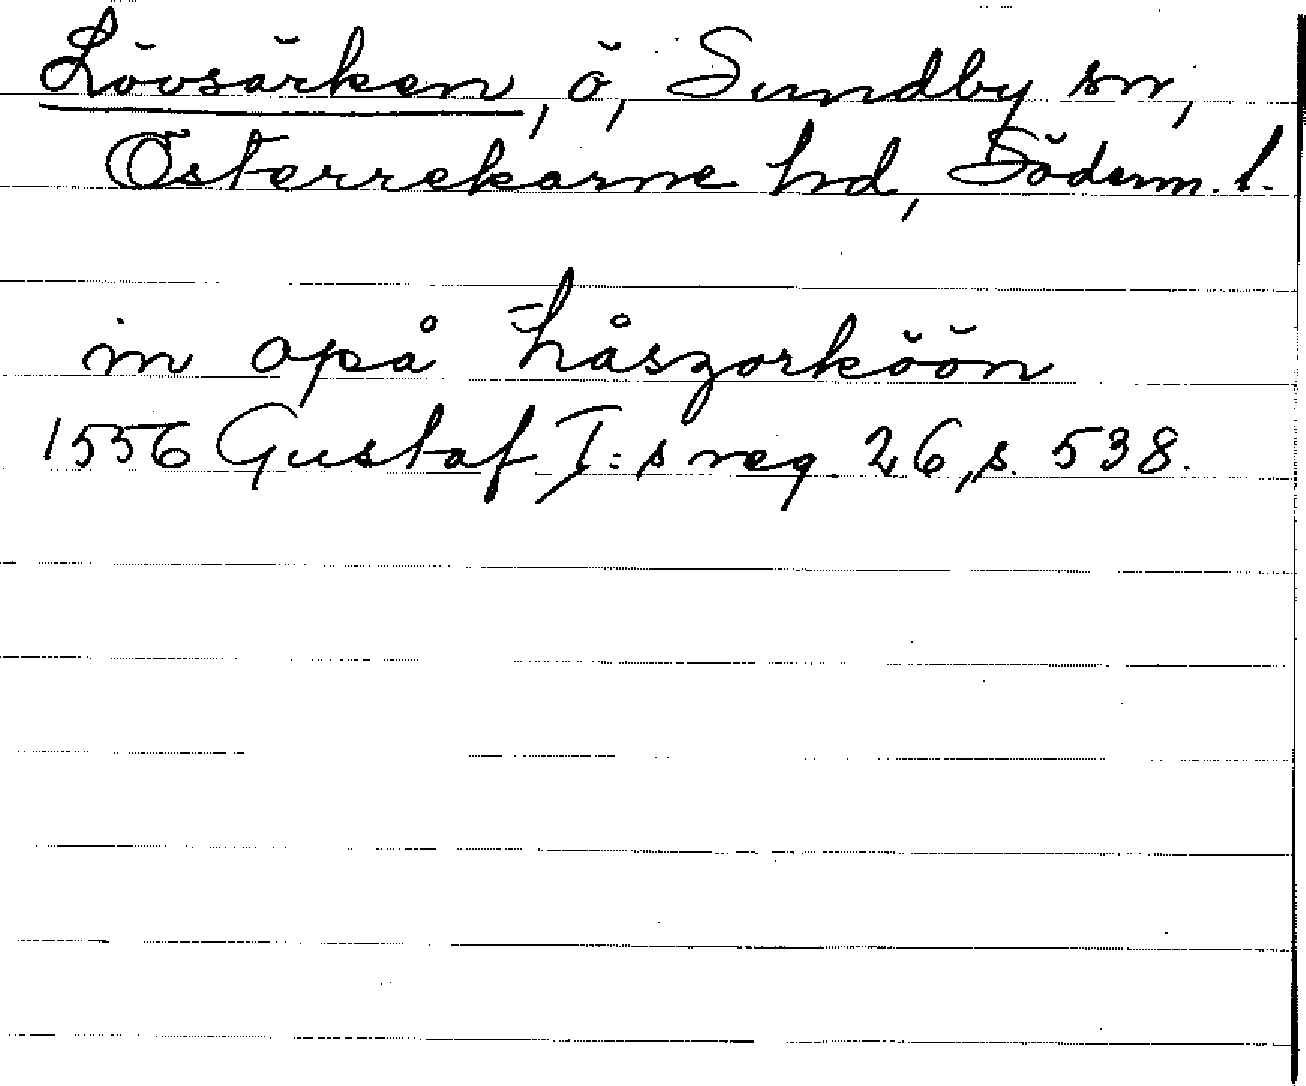 Lövsärken, ö, Sundby sn,
Österrekarne hd, Söderm. l.
in opå håszorköön
1556 Gustaf I:s reg 26, s. 538.